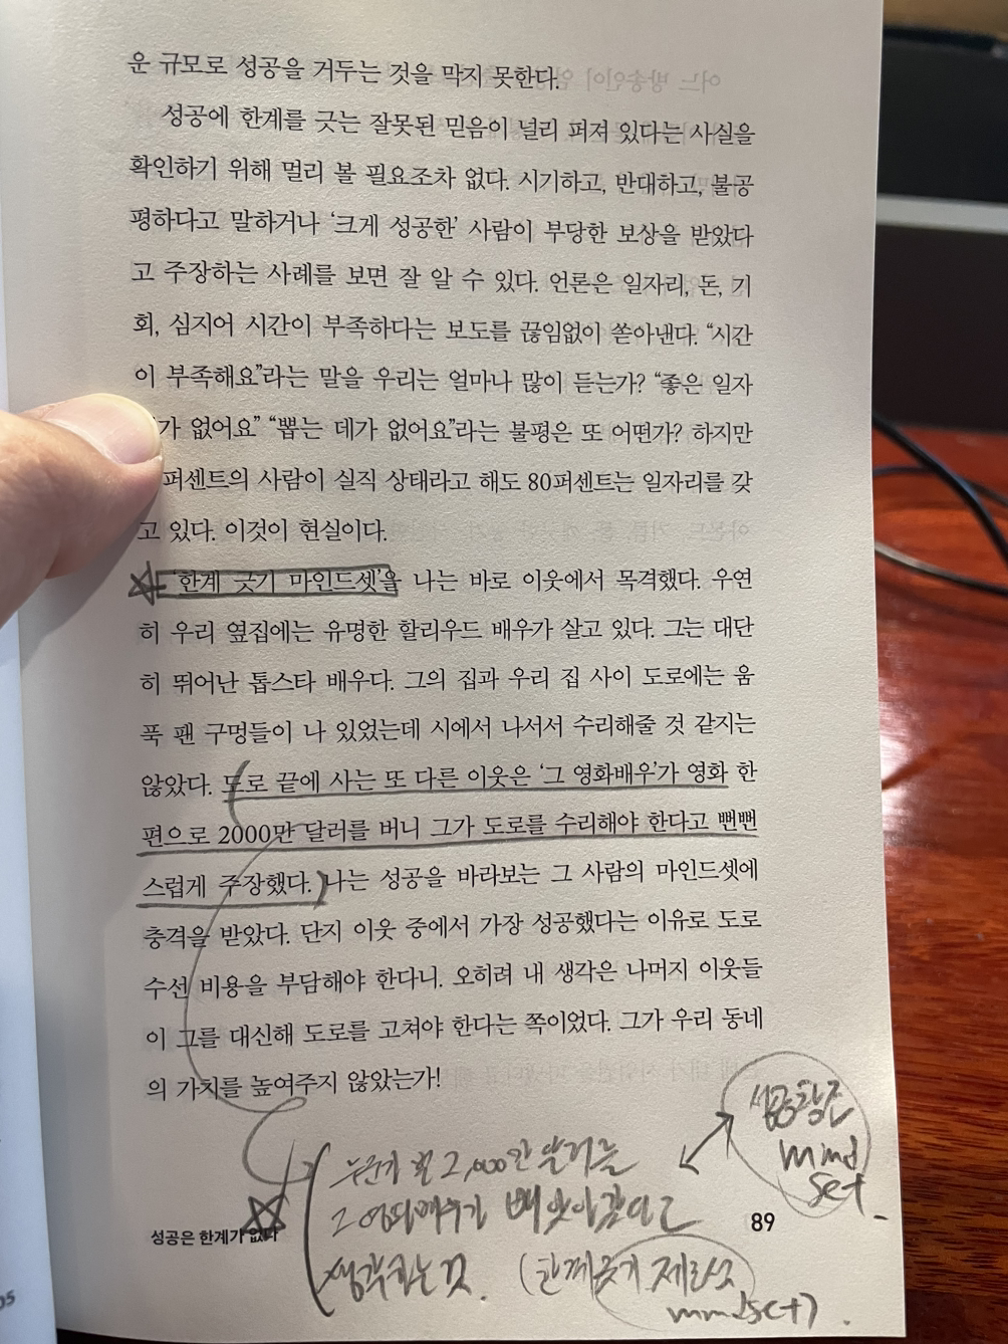 운 규모로 성공을 거두는 것을 막지 못한다.
성공에 한계를 긋는 잘못된 믿음이 널리 퍼져 있다는 사실을
확인하기 위해 멀리 볼 필요조차 없다. 시기하고, 반대하고, 불공
평하다고 말하거나 ‘크게 성공한’ 사람이 부당한 보상을 받았다
고 주장하는 사례를 보면 잘 알 수 있다. 언론은 일자리, 돈, 기
회, 심지어 시간이 부족하다는 보도를 끊임없이 쏟아낸다. “시간
이 부족해요”라는 말을 우리는 얼마나 많이 듣는가? “좋은 일자
가 없어요” “뽑는 데가 없어요”라는 불평은 또 어떤가? 하지만
퍼센트의 사람이 실직 상태라고 해도 80퍼센트는 일자리를 갖
고 있다. 이것이 현실이다.
‘한계 긋기 마인드셋’을 나는 바로 이웃에서 목격했다. 우연
히 우리 옆집에는 유명한 할리우드 배우가 살고 있다. 그는 대단
히 뛰어난 톱스타 배우다. 그의 집과 우리 집 사이 도로에는 움
푹 팬 구멍들이 나 있었는데 시에서 나서서 수리해줄 것 같지는
않았다. 도로 끝에 사는 또 다른 이웃은 ‘그 영화배우’가 영화 한
편으로 2000만 달러를 버니 그가 도로를 수리해야 한다고 뻔뻔
스럽게 주장했다. 나는 성공을 바라보는 그 사람의 마인드셋에
충격을 받았다. 단지 이웃 중에서 가장 성공했다는 이유로 도로
수선 비용을 부담해야 한다니. 오히려 내 생각은 나머지 이웃들
이 그를 대신해 도로를 고쳐야 한다는 쪽이었다. 그가 우리 동네
의 가치를 높여주지 않았는가!
성공창조
mind
set
누군가 할 2,000만 달러를
그 영화배우가 빼앗아 갔다고
생각하는 것. (한계긋기 제로섬
mindset)
성공은 한계가 없다
89